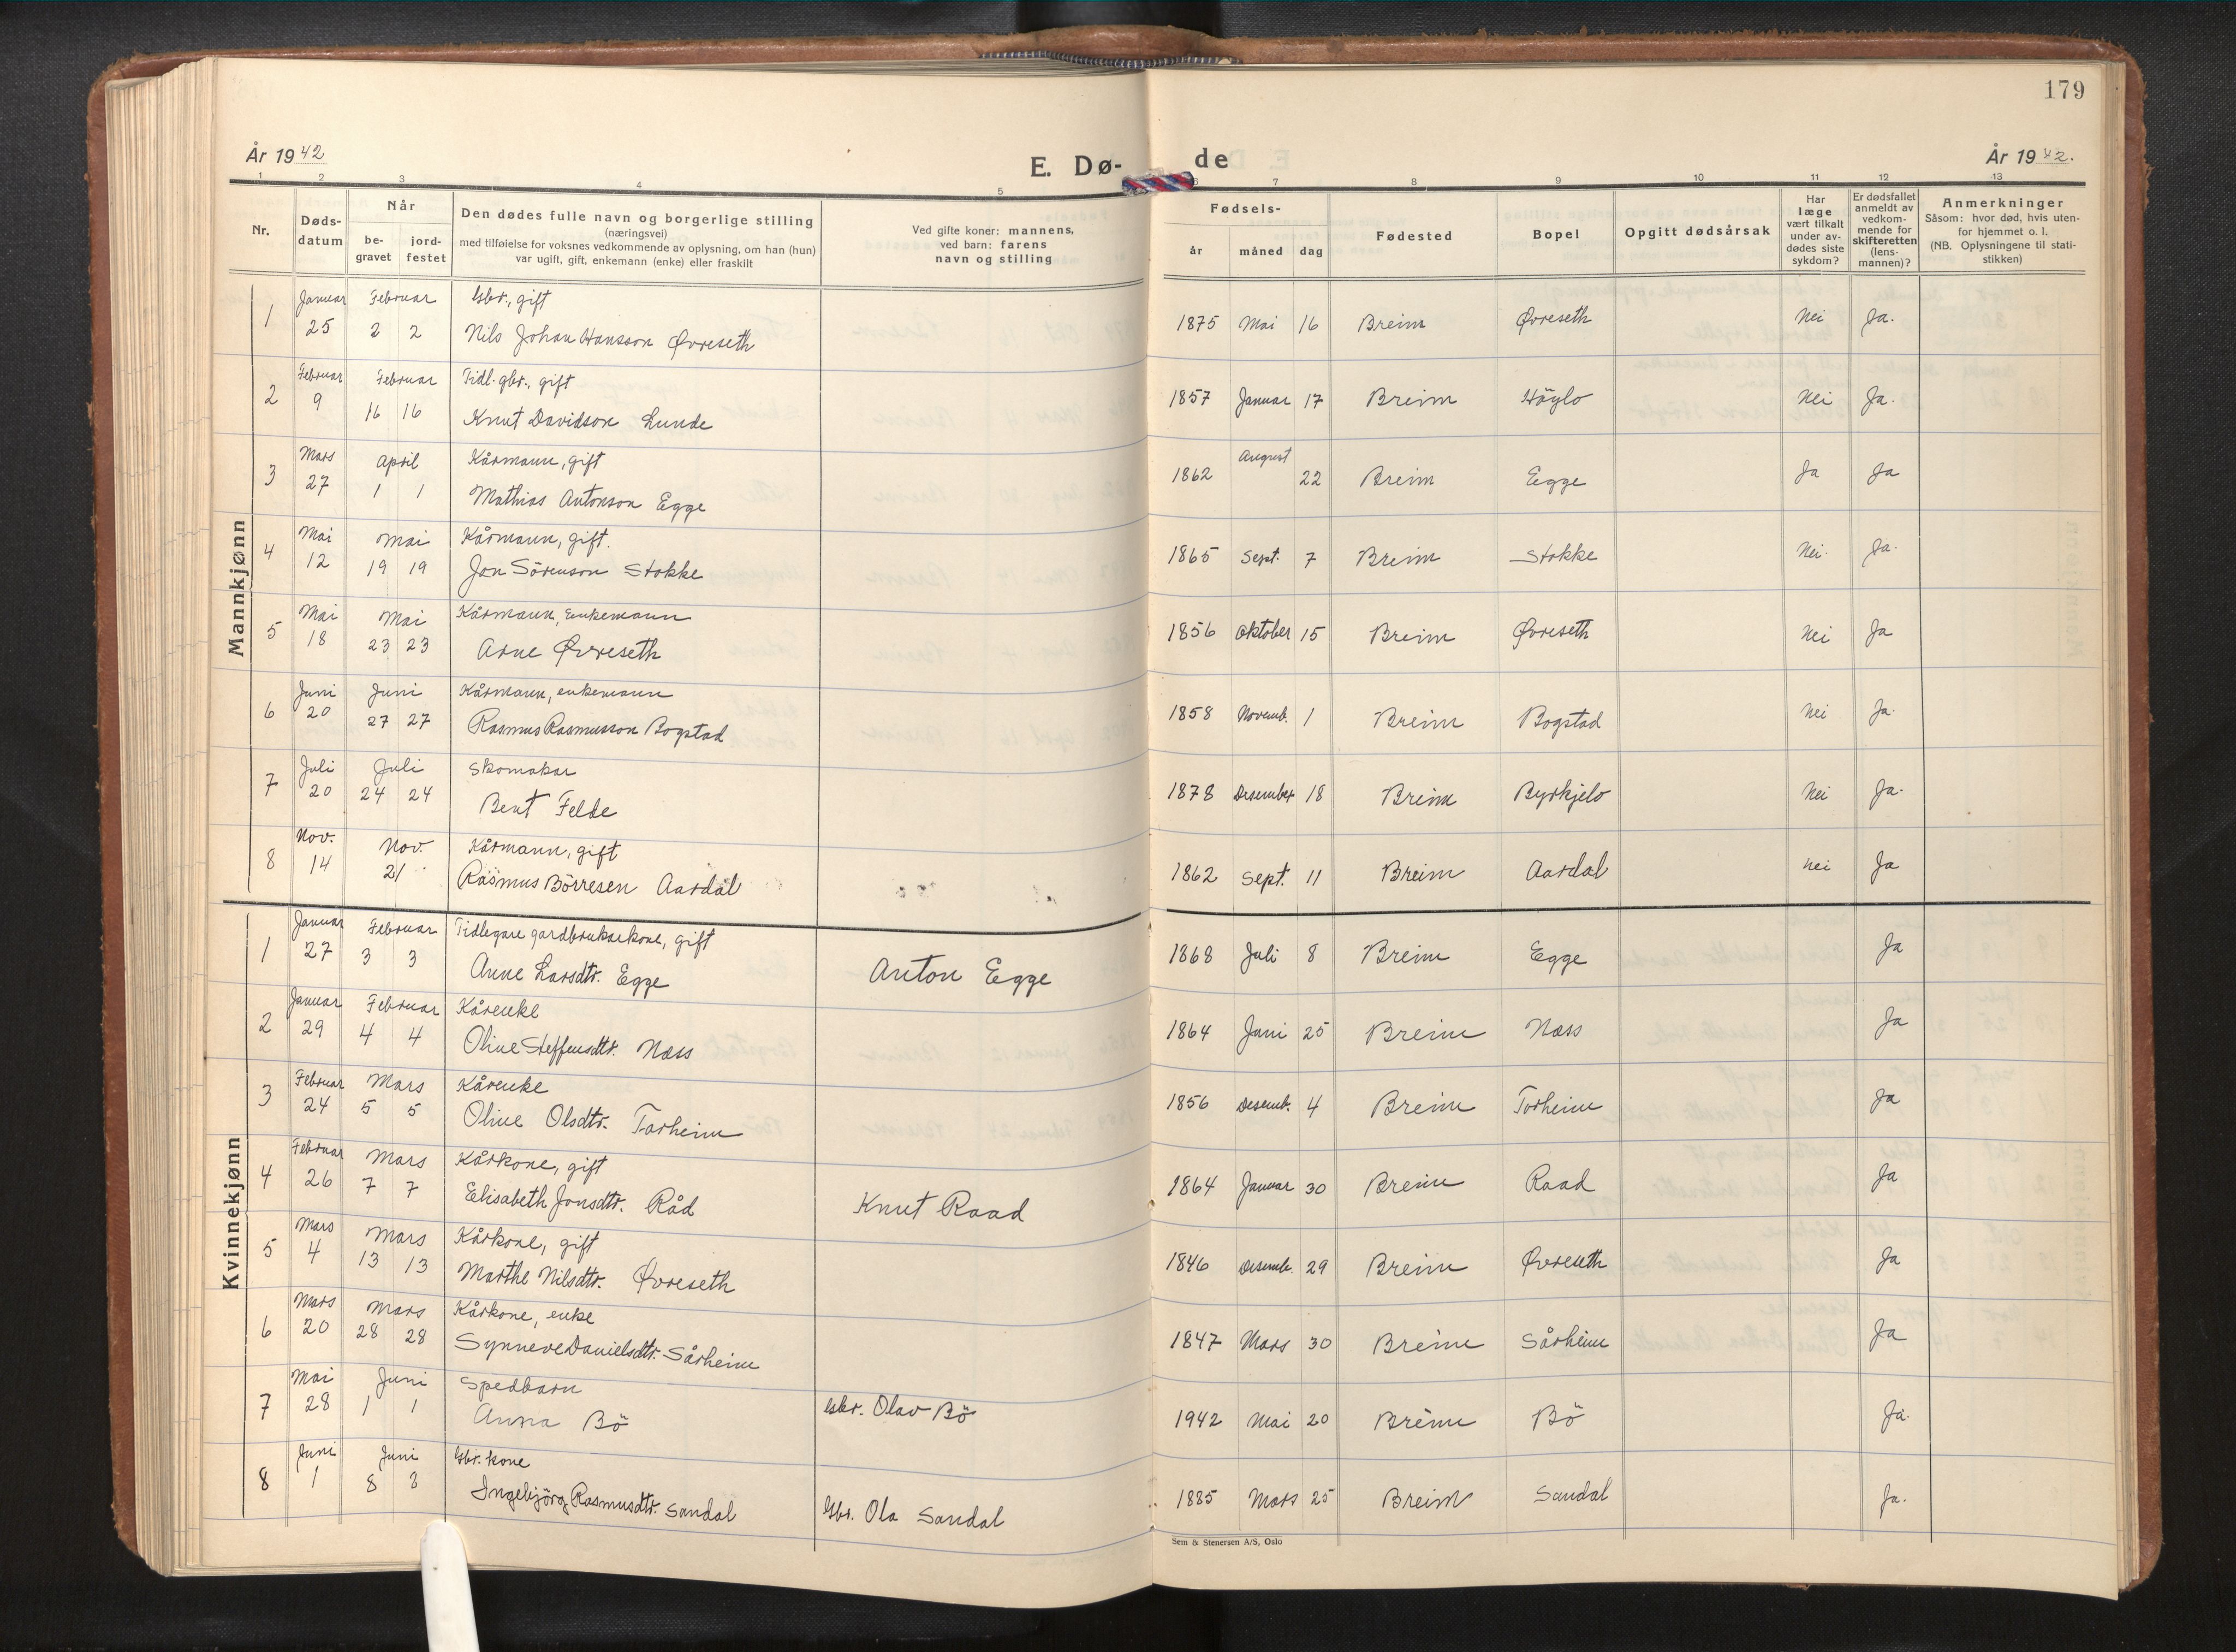 179
År 1942
E. Dø-
de
År 1942.
1 2 3 4 5
6 7 8 9 10 11 12 13
Nr.
Døds-
datum
Når
be-
gravet
jord-
festet
Den dødes fulle navn og borgerlige stilling
(næringsvei)
med tilføielse for voksnes vedkommende av oplysning, om han (hun)
var ugift, gift, enkemann (enke) eller fraskilt
Ved gifte koner: mannens,
ved barn: farens
navn og stilling
Fødsels-
år måned dag
Fødested
Bopel
Opgitt dødsårsak
Har
læge
vært tilkalt
under av-
dødes siste
sykdom?
Er dødsfallet
anmeldt av
vedkom-
mende for
skifteretten
(lens-
mannen)?
Anmerkninger
Såsom: hvor død, hvis uten-
for hjemmet o. l.
(NB. Oplysningene til stati-
stikken)
Mannkjønn
Januar Februar Gbr., gift
1 25 2 2 Nils Johan Hansson Øvreseth 1875 Mai 16 Breim Øvreseth Nei Ja.
Februar Februar Tidl. gbr., gift
2 9 16 16 Knut Davidson Lunde 1857 Januar 17 Breim Höylo Nei Ja.
Mars April Kårmann, gift August
3 27 1 1 Mathias Antonson Egge 1862 22 Breim Egge Ja Ja
Mai Mai Kårmann, gift.
4 12 19 19 Jon Sörenson Stokke 1865 Sept. 7 Breim Stokke Nei. Ja.
Mai Mai Kårmann, Enkemann
5 18 23 23 Arne Øvreseth 1856 Oktober 15 Breim Øvreseth Nei Ja
Juni Juni Kårmann, enkemann
6 20 27 27 Rasmus Rasmusson Bogstad 1858 Novemb. 1 Breim Bogstad Nei Ja.
Juli Juli Skomakar
7 20 24 24 Bent Felde 1878 Desember 18 Breim Byrkjelo Nei Ja.
Nov. Nov. Kårmann, gift
8 14 21 Rasmus Börresen Aardal 1862 Sept. 11 Breim Aardal Nei Ja
Kvinnekjønn
Januar Februar Tidlegare gardbrukarkone, gift
1 27 3 3 Anne Larsdtr. Egge Anton Egge 1868 Juli 8 Breim Egge Ja
Januar Februar Kårenke
2 29 4 4 Oline Steffensdtr. Næss 1864 Juni 25 Breim Næss Ja
Februar Mars Kårenke
3 24 5 5 Oline Olsdtr. Torheim 1856 Desemb. 4 Breim Torheim Ja
Februar Mars Kårkone, gift
4 26 7 7 Elisabeth Jonsdtr. Råd Knut Raad 1864 Januar 30 Breim Raad Ja
Mars Mars Kårkone, gift
5 4 13 13 Marthe Nilsdtr. Øvreseth 1846 Desemb. 29 Breim Øvreseth Ja
Mars Mars Kårkone, enke
6 20 28 28 Synneve Danielsdtr. Sårheim 1847 Mars 30 Breim Sårheim Ja
Mai Juni Spedbarn
7 28 1 1 Anna Bö Gbr. Olav Bö 1942 Mai 20 Breim Bö Ja.
Juni Juni Gbr. kone
8 1 8 8 Ingebjörg Rasmusdtr. Sandal Gbr. Ola Sandal 1885 Mars 25 Breim Sandal Ja.
Sem & Stenersen A/S, Oslo